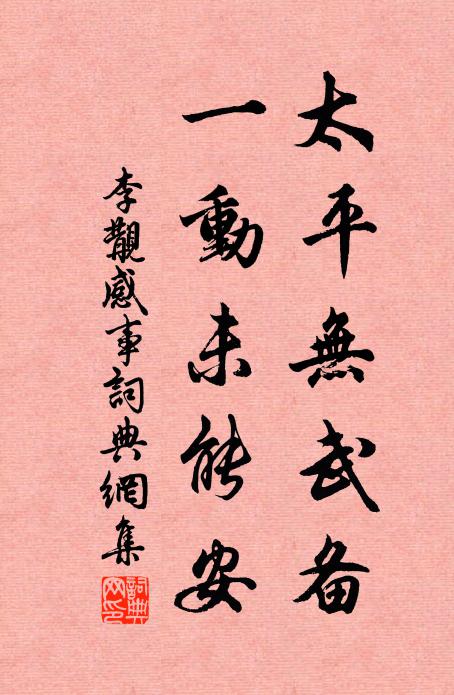 太平無武备
一動未能安
李覯感事詞典網集
詞典网印